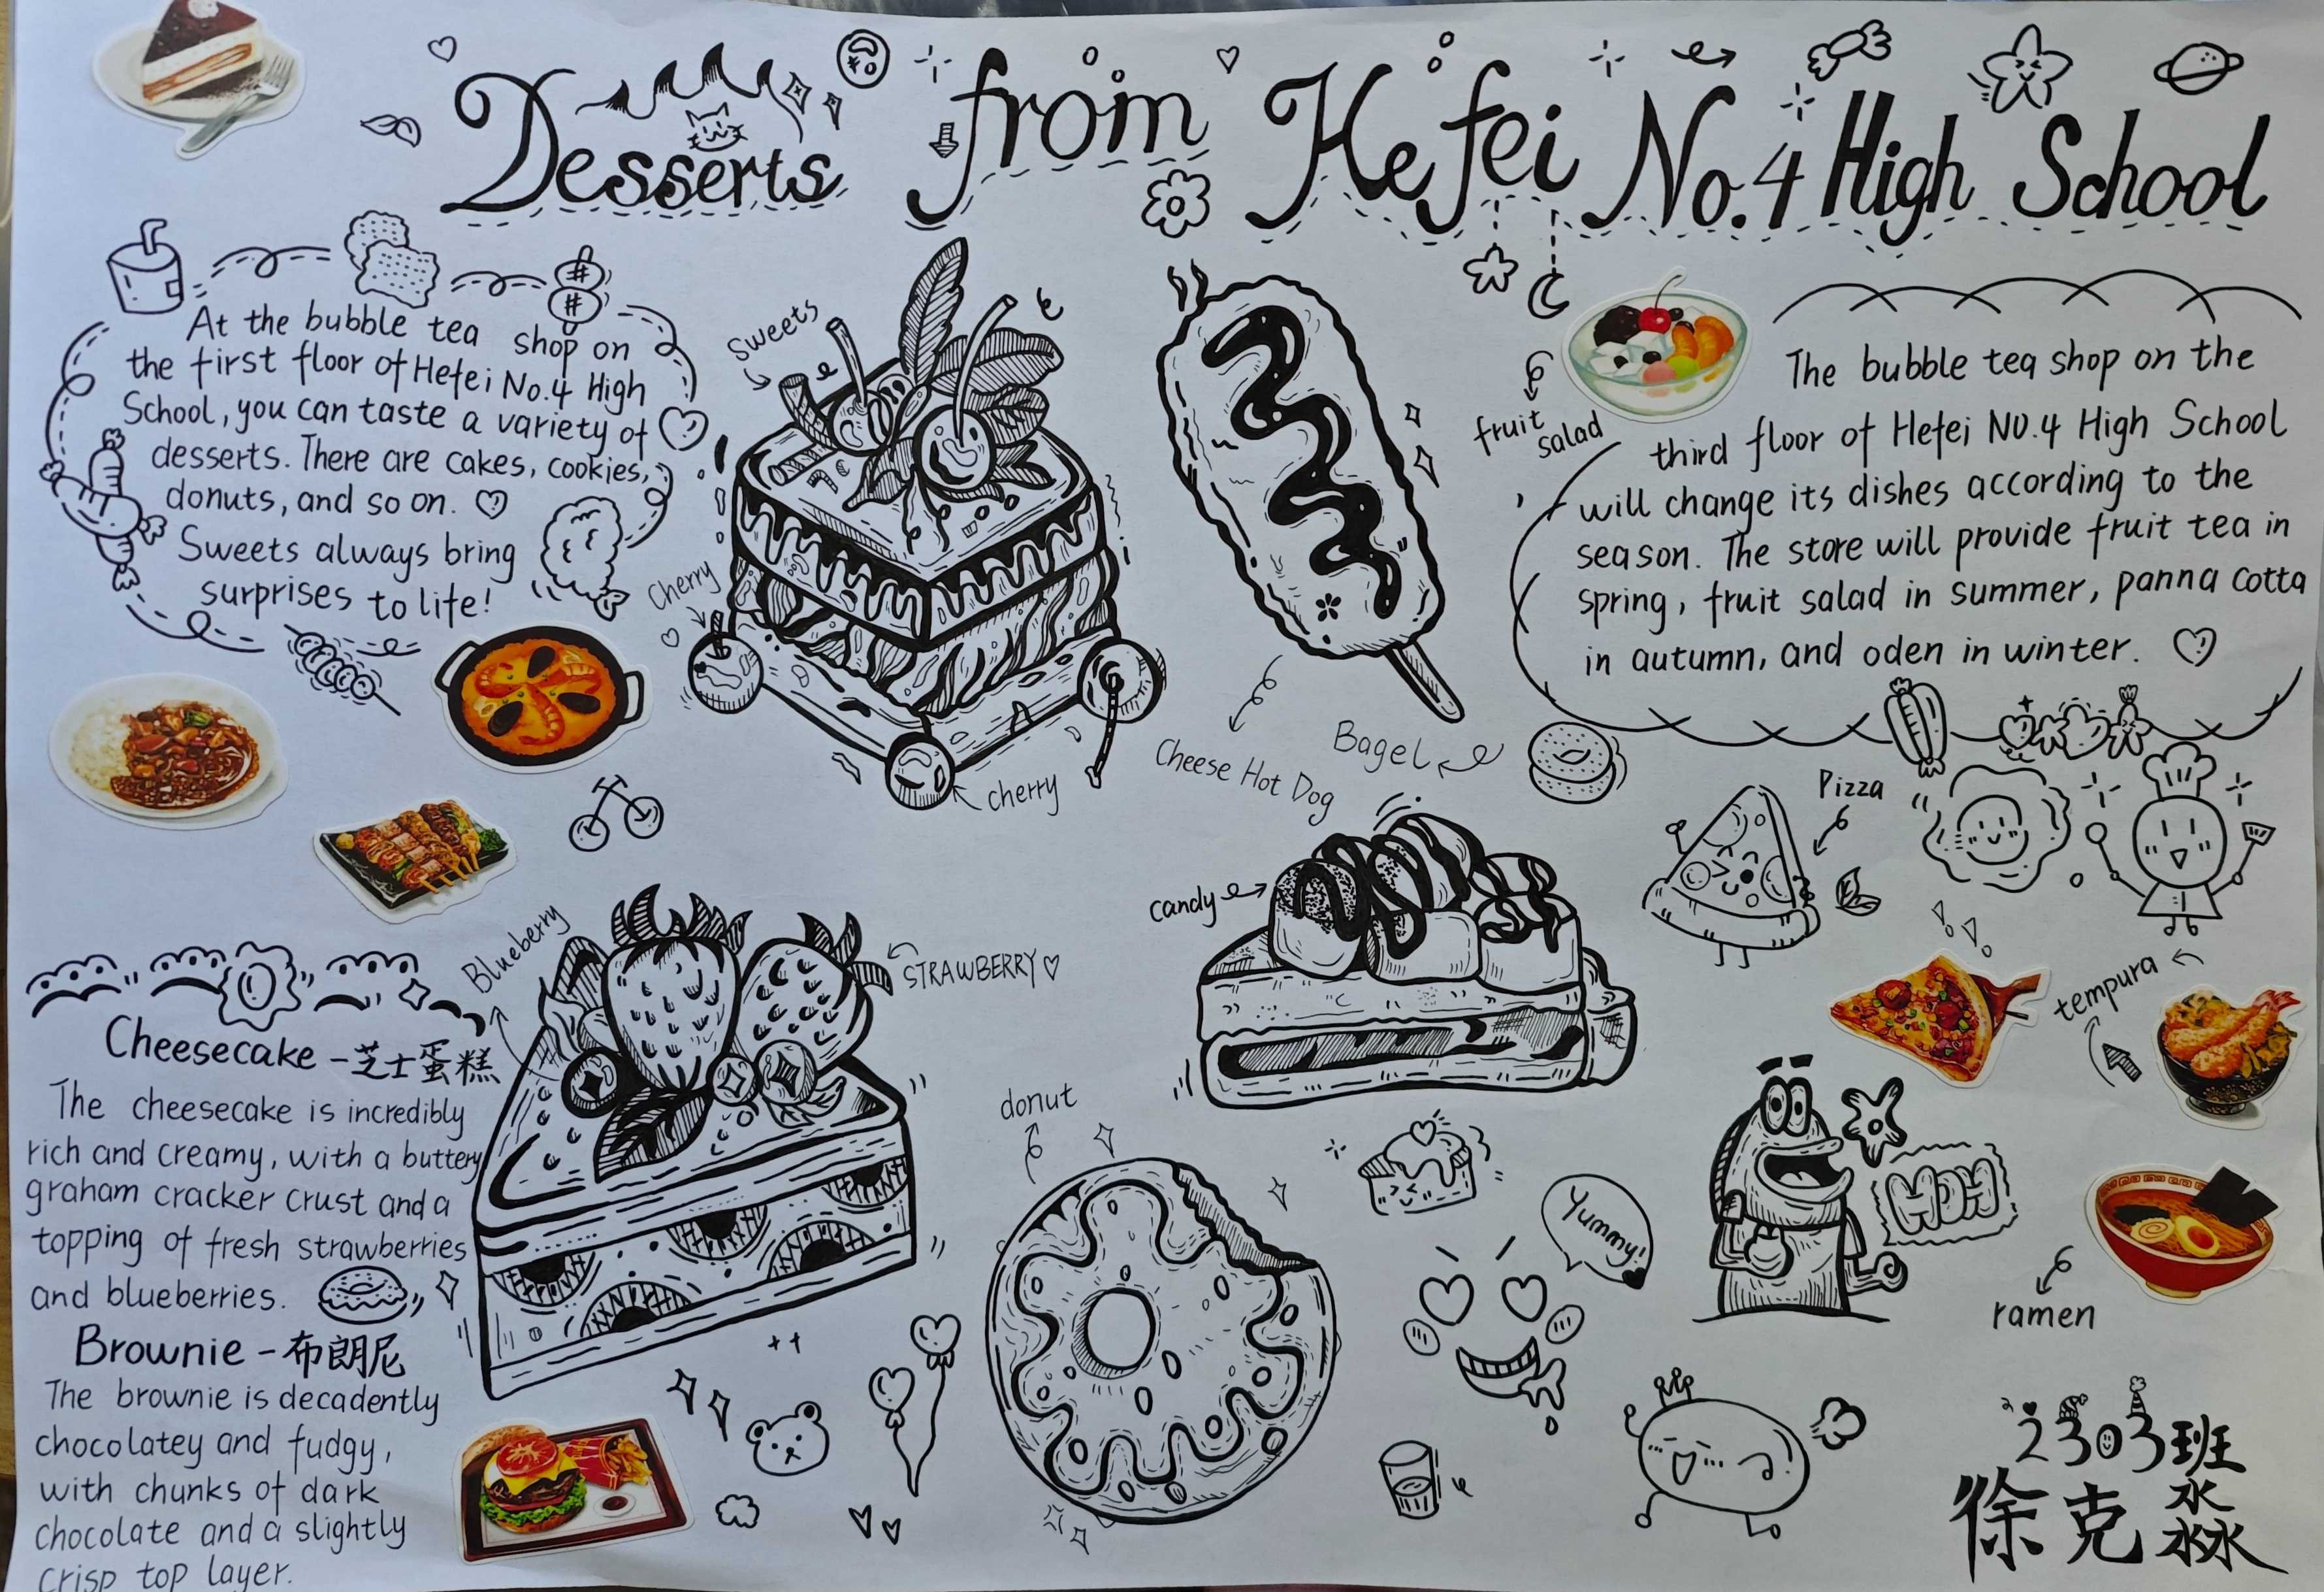 Desserts from Hefei No.4 High School
At the bubble tea shop on
the first floor of Hefei No.4 High
School, you can taste a variety of
desserts. There are cakes, cookies,
donuts, and so on.
Sweets always bring
surprises to life!
sweets
cherry
cherry
Cheese Hot Dog
Bagel
fruit
salad
The bubble tea shop on the
third floor of Hefei NO.4 High School
will change its dishes according to the
season. The store will provide fruit tea in
spring, fruit salad in summer, panna cotta
in autumn, and oden in winter.
Pizza
candy
Blueberry
STRAWBERRY
tempura
Cheesecake - 芝士蛋糕
The cheesecake is incredibly
rich and creamy, with a buttery
graham cracker crust and a
topping of fresh strawberries
and blueberries.
Brownie - 布朗尼
The brownie is decadently
chocolatey and fudgy,
with chunks of dark
chocolate and a slightly
crisp top layer.
donut
Yummy!
ramen
2303班
徐克淼